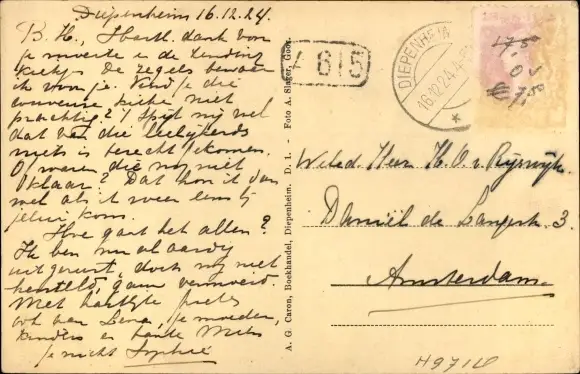 Diepenheim 16.12.24.
B. H., Hartl. dank voor
je moeite e de zending
kiekjes. De zegels bewaar
ik voor je. Vind je die
kiekje niet
prachtig? Spijt mij wel
dat van die
niets is terecht gekomen.
O, waren die nog niet
klaar? Dat kon ik dan
wel als ik weer eens bij
jelui kom.
Hoe gaat het allen?
Ik ben nu al aardig
uitgerust, doch nog niet
hersteld, gauw vermoeid.
Met hartelijke groetes
ook van Lena, je moeder,
kinders en tante
je nicht Sophie
1615
DIEPENHEIM
16.12.24
175
A. G. Caron, Boekhandel, Diepenheim. D. 1. - Foto A. Slager, Goor.
Weled. Heer H. O. v. Rijswijk.
Daniël de Langestr. 3.
Amsterdam.
H9716